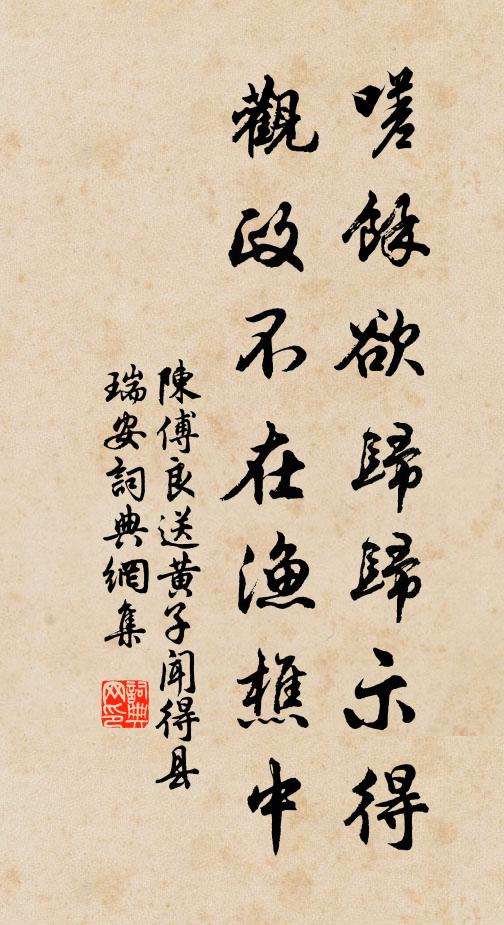 嗟餘欲歸歸示得
觀政不在漁樵中
陳傅良送黃子聞得县
瑞安詞典網集
詞典网印